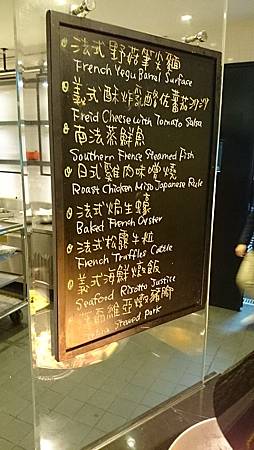 法式野菇筆尖麵
French Yegu Barrel Surface
義式酥炸乳酪佐蕃茄沙沙
Freid Cheese with Tomato Salsa
南法蒸鮮魚
Southern Frence Steamed Fish
日式雞肉味噌燒
Roast Chicken Miso Japanese Rule
法式焗生蠔
Baked French Oyster
法式松露牛粒
French Truffles Cattle
義式海鮮燉飯
Seaford Risotto Justice
西維亞燉豬腳
Stewed Pork